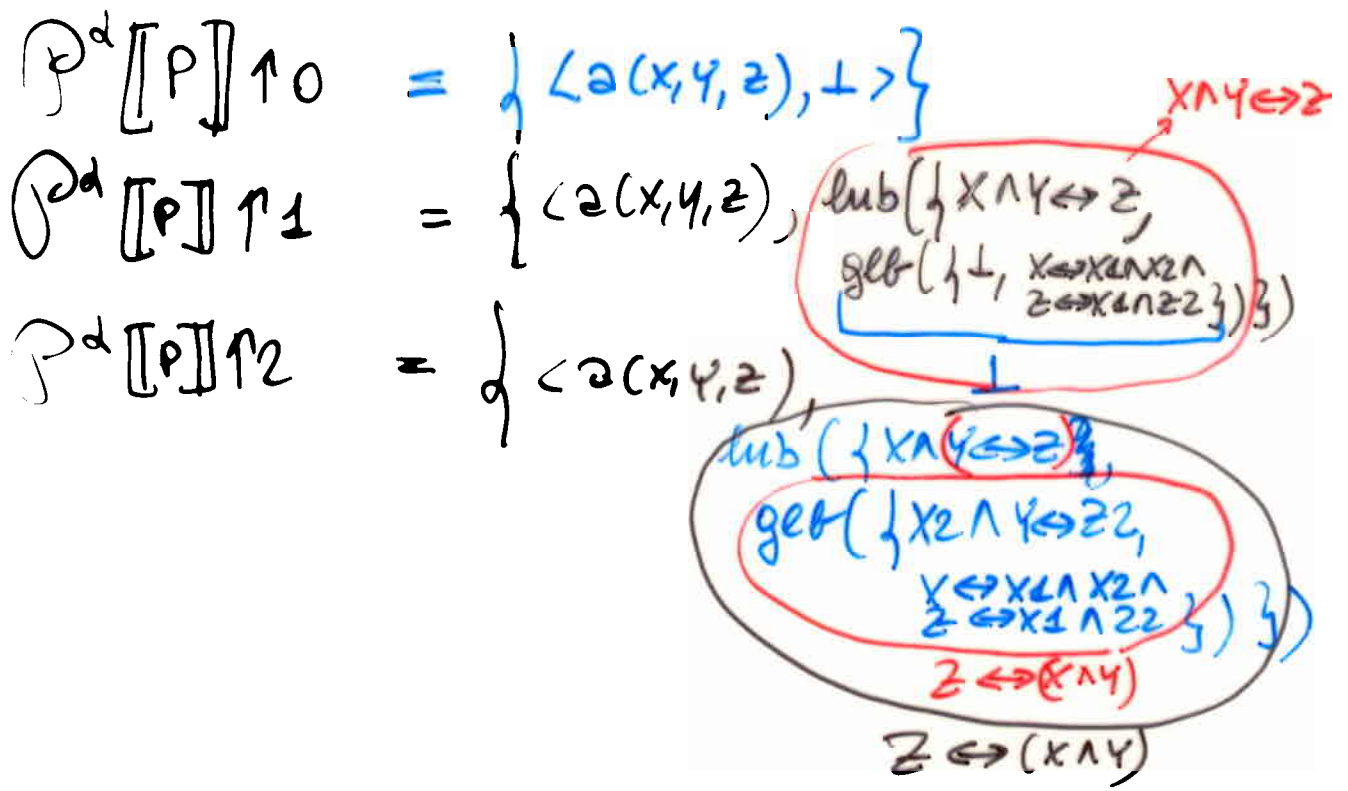 P^α ⟦P⟧ ↑ 0 = { <a(X,Y,Z), ⊥> }
X∧Y↔Z
P^α ⟦P⟧ ↑ 1 = { <a(X,Y,Z), lub({X∧Y↔Z,
glb({⊥, X↔X1∧X2∧
Z↔X1∧Z2})})
⊥
P^α ⟦P⟧ ↑2 = { <a(X,Y,Z),
lub({X∧(Y↔Z),
glb({X2∧Y↔Z2,
X↔X1∧X2∧
Z↔X1∧Z2})})
Z↔(X∧Y)
Z↔(X∧Y)